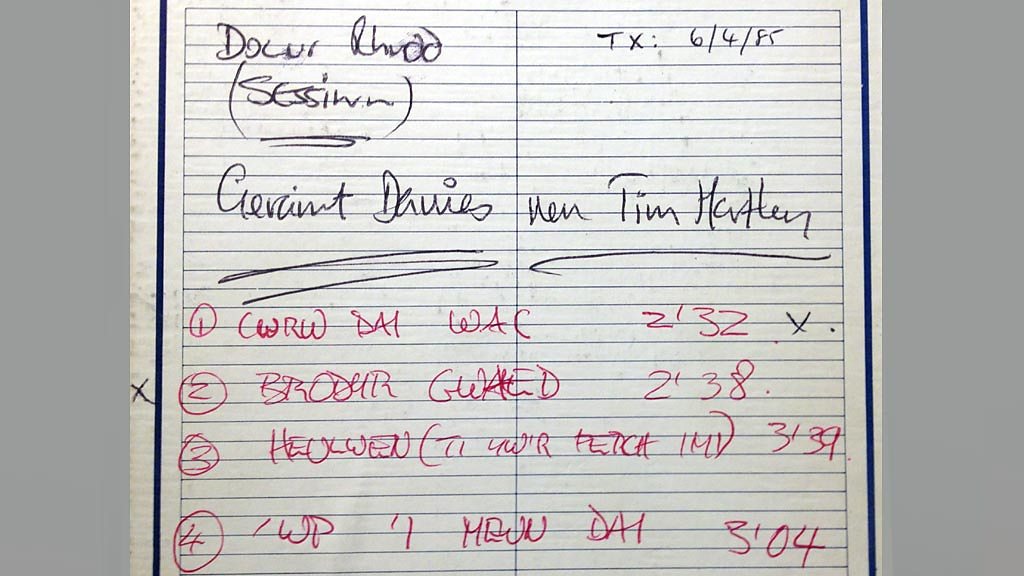 Docur Rhodd TX: 6/4/85
(SESSIWN)
Geraint Davies neu Tim Hartley
① CWRW DAI WAC 2'32 X.
X ② BRODYR GWAED 2'38.
③ HEULWEN (TI YW'R FETCH IMI) 3'39
④ 'WP 'I MEWN DAI 3'04